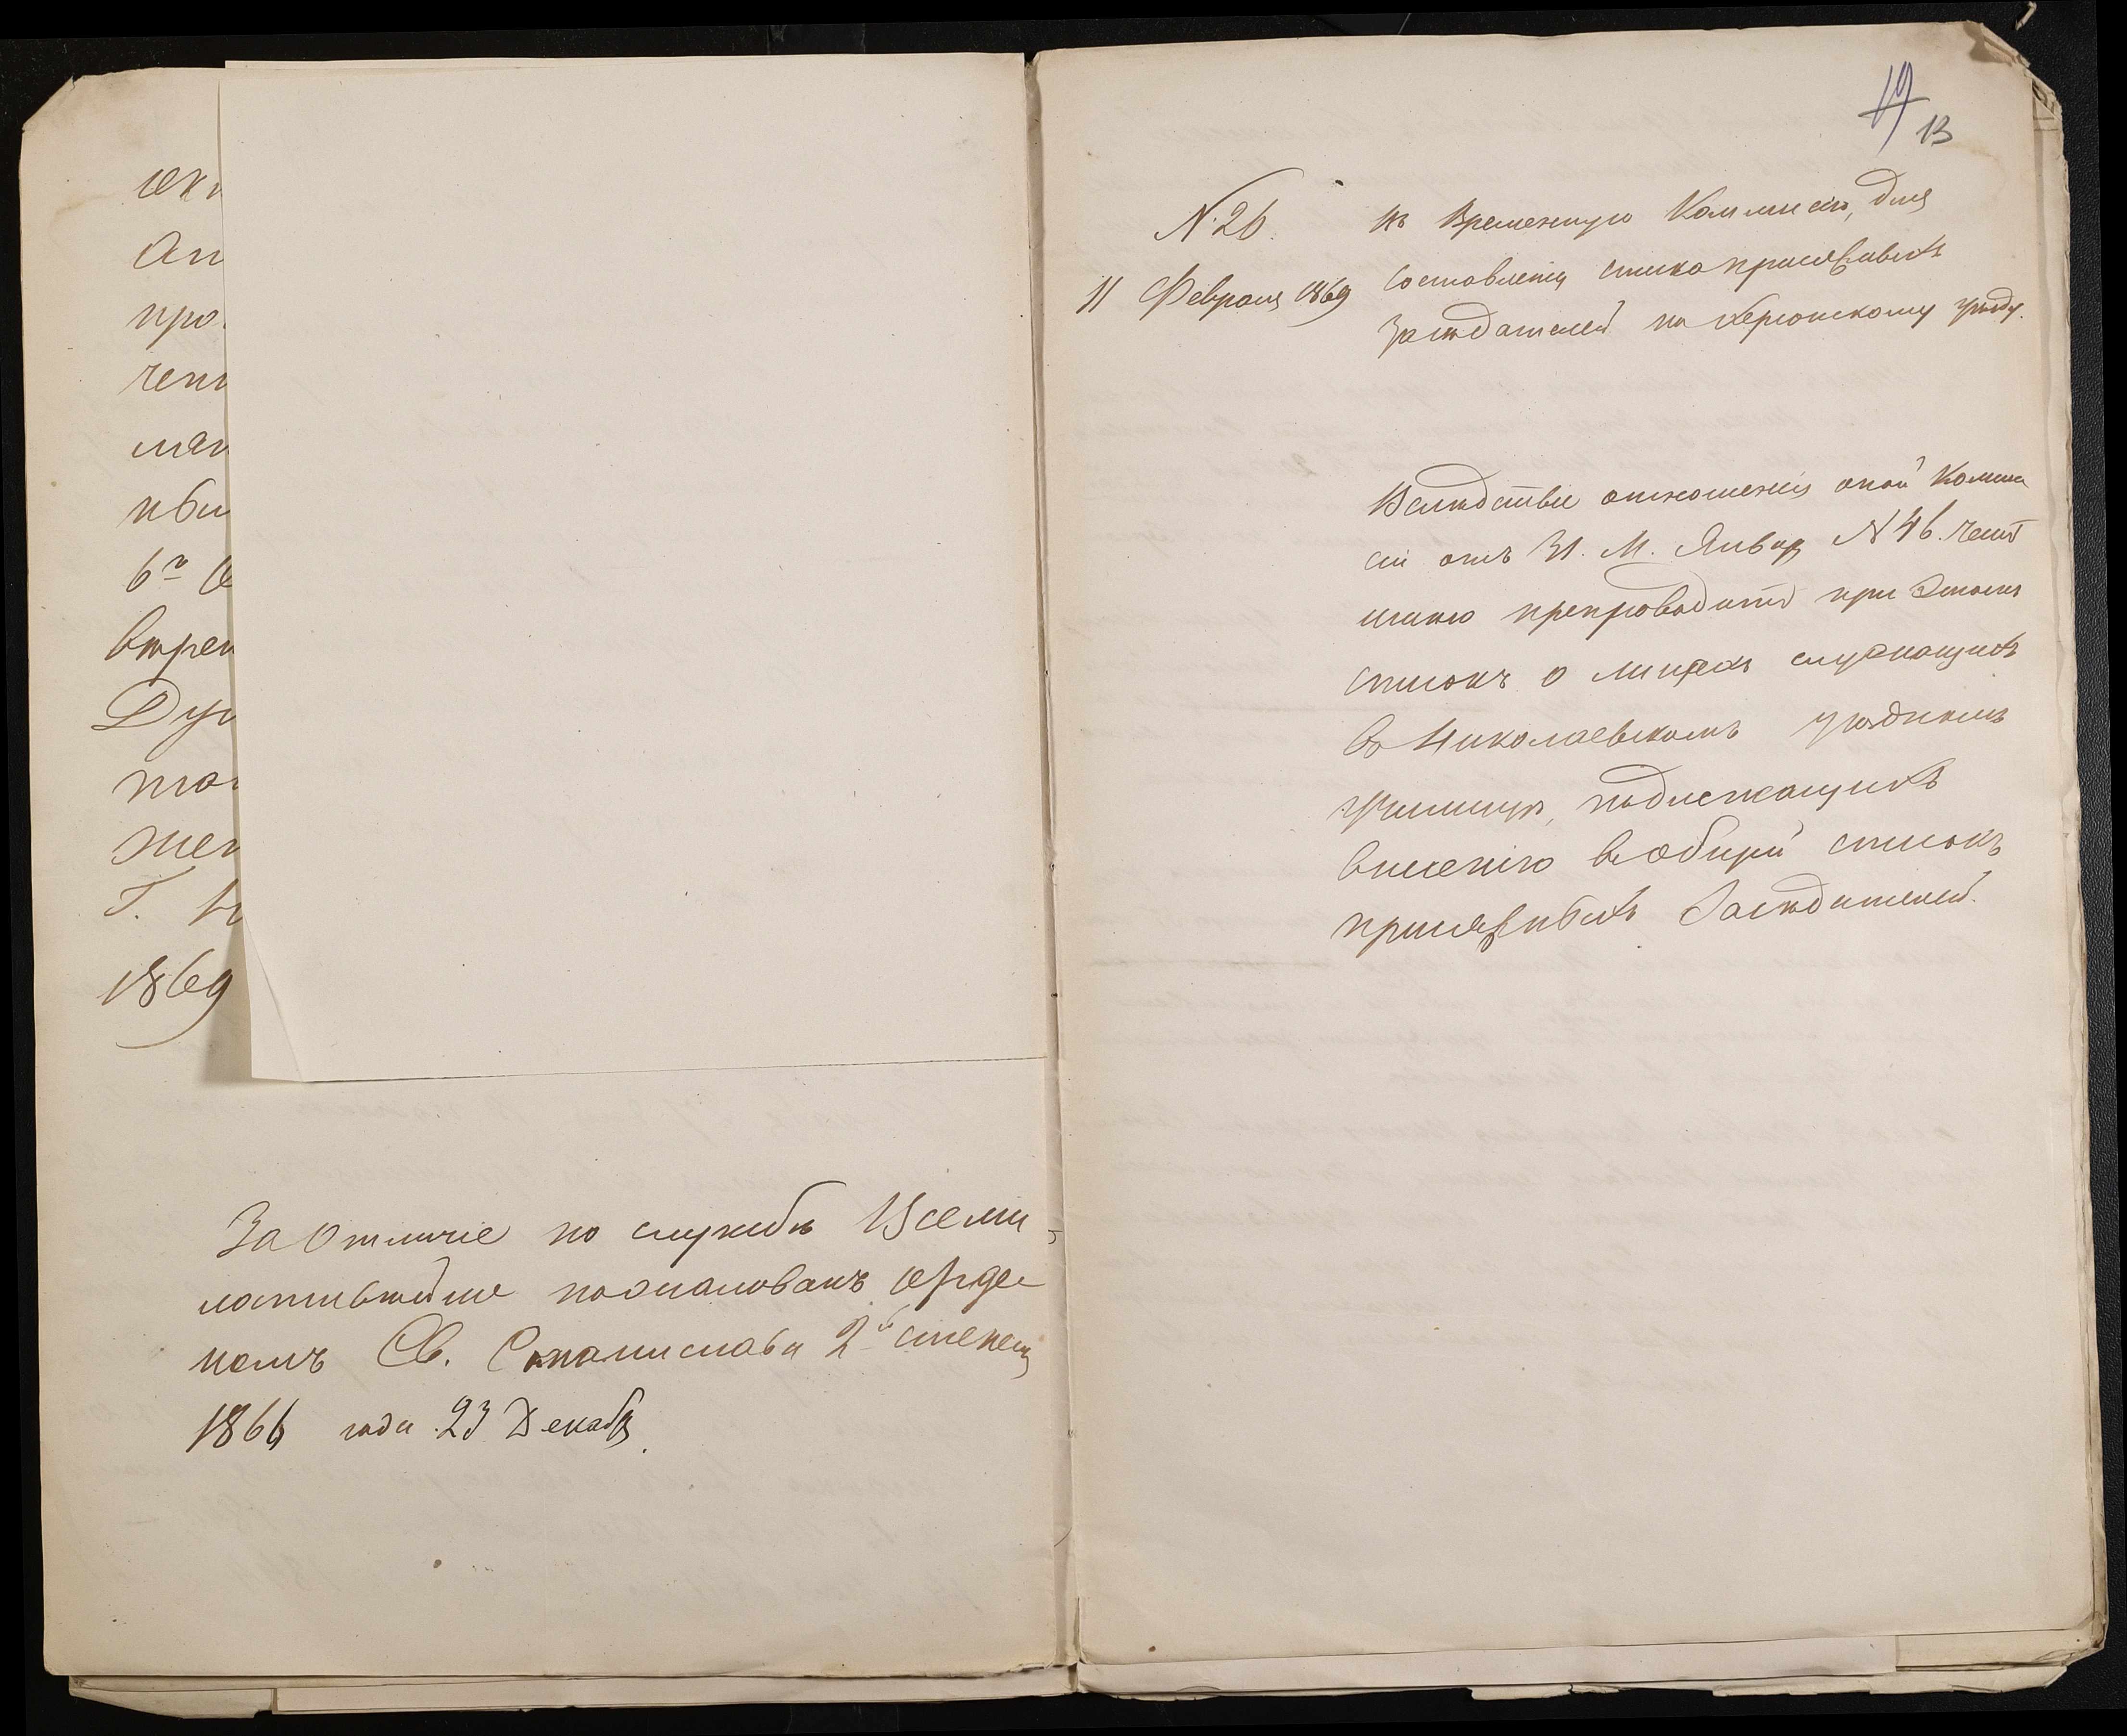 про
чени
1869
За Отличіе по службѣ Всеми-
лостивѣйше пожалованъ орде-
номъ Св. Станислава 2й степени
1866 года 23 Декабря.
19
13
N. 26.
11 Февраля 1869
Въ Временную Коммисію, для
составленія списка присяжныхъ
Засѣдателей по Херсонскому уѣзду.
Вслѣдствіе отношенія оной Комми
сіи отъ 31. М. Января N 46. честь
имѣю препроводить при этомъ
списокъ о лицахъ служащихъ
въ Николаевскомъ уѣздномъ
училищѣ, подлежащихъ
внесенію въ общій списокъ
присяжныхъ Засѣдателей.